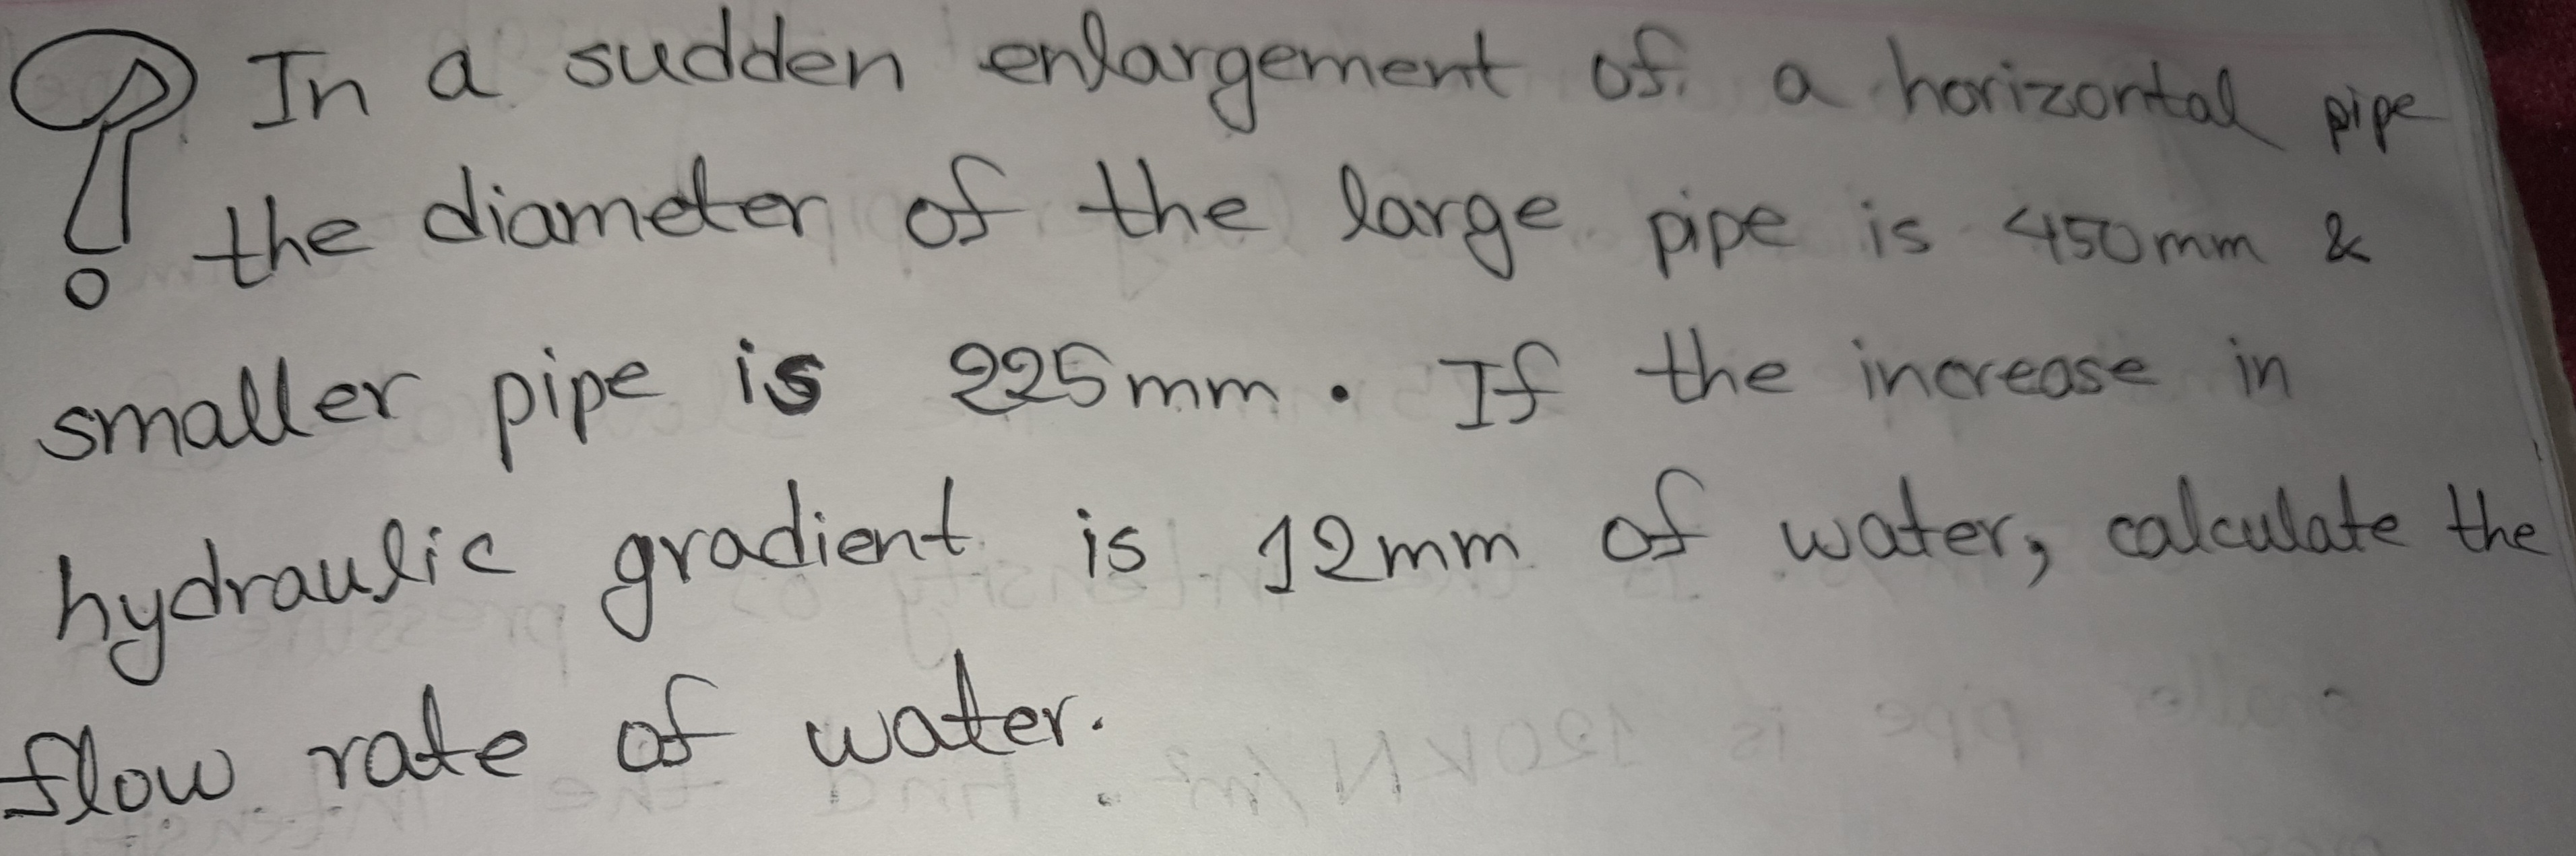 In a sudden enlargement of a horizontal pipe
the diameter of the large pipe is 450mm &
smaller pipe is 225mm. If the increase in
hydraulic gradient is 12mm of water, calculate the
flow rate of water.